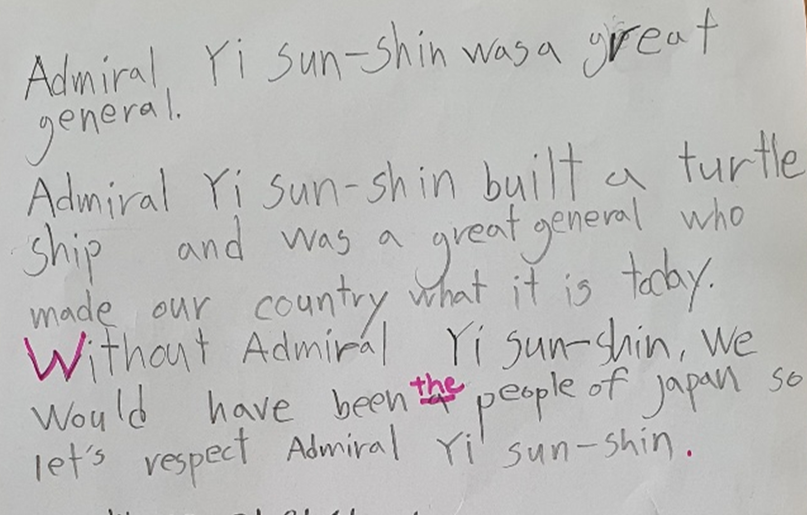 Admiral Yi sun-shin was a great
general.
Admiral Yi sun-shin built a turtle
ship and was a great general who
made our country what it is today.
Without Admiral Yi sun-shin, we
would have been the people of japan so
let's respect Admiral Yi sun-shin.